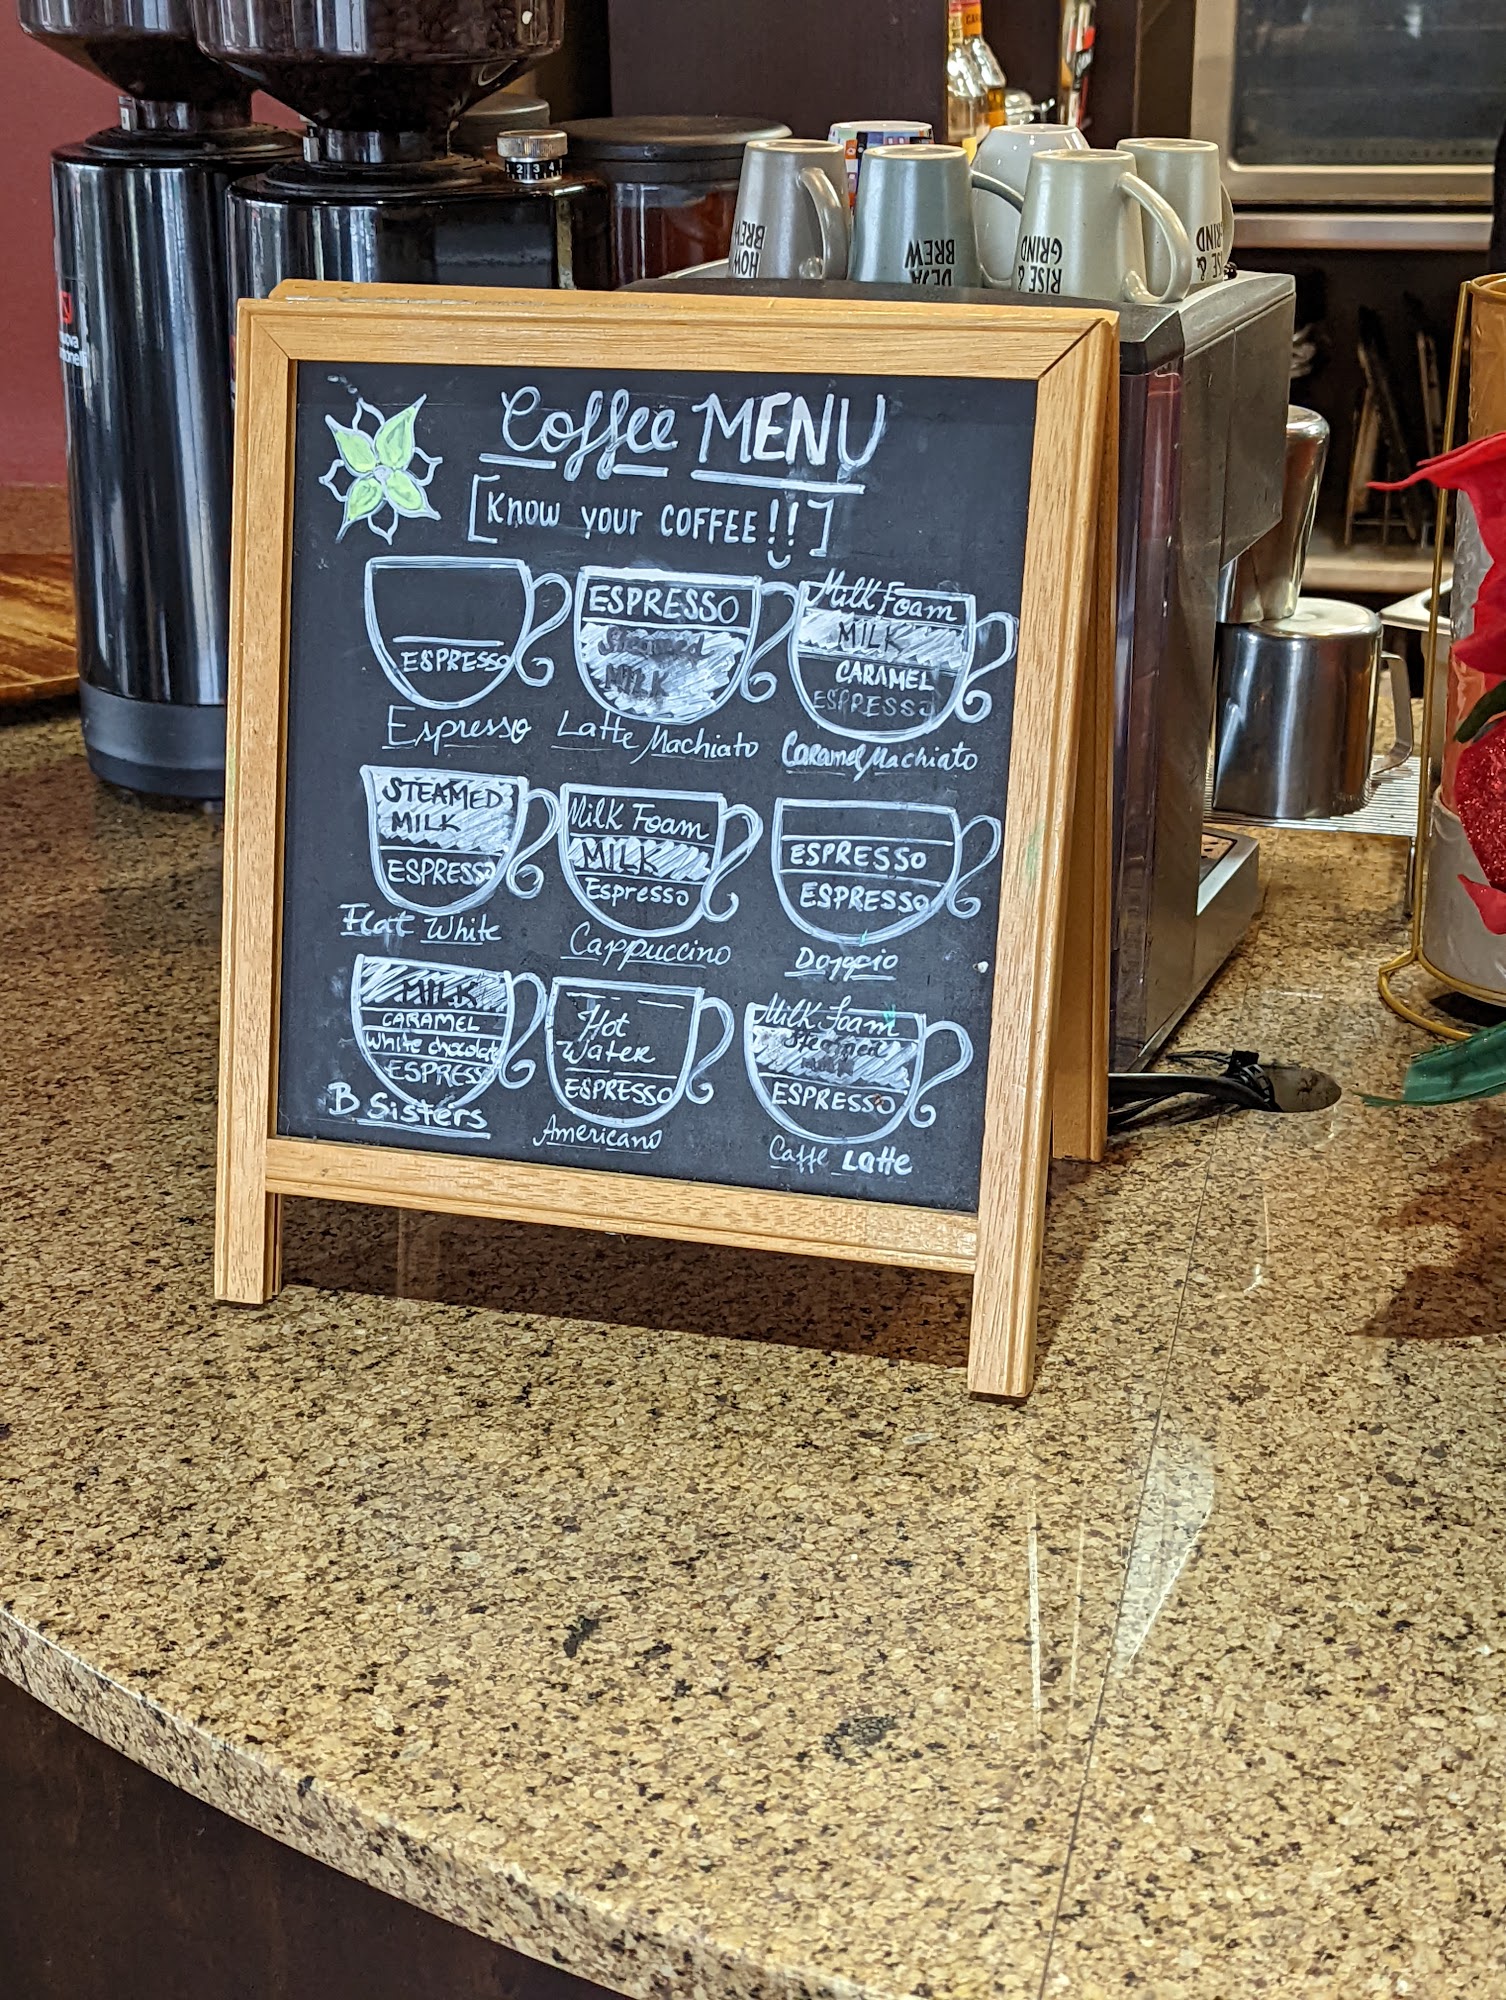 1 2 3 4
HOW
BREW
DEJA
BREW
RISE &
GRIND
RISE &
GRIND
Coffee MENU
[Know your COFFEE!!]
ESPRESSO
Espresso
ESPRESSO
Steamed
MILK
Latte Machiato
Milk Foam
MILK
CARAMEL
ESPRESSO
Caramel Machiato
STEAMED
MILK
ESPRESSO
Flat White
Milk Foam
MILK
Espresso
Cappuccino
ESPRESSO
ESPRESSO
Doppio
MILK
CARAMEL
White chocolate
ESPRESSO
B Sisters
Hot
Water
ESPRESSO
Americano
Milk Foam
Steamed
Milk
ESPRESSO
Caffe Latte